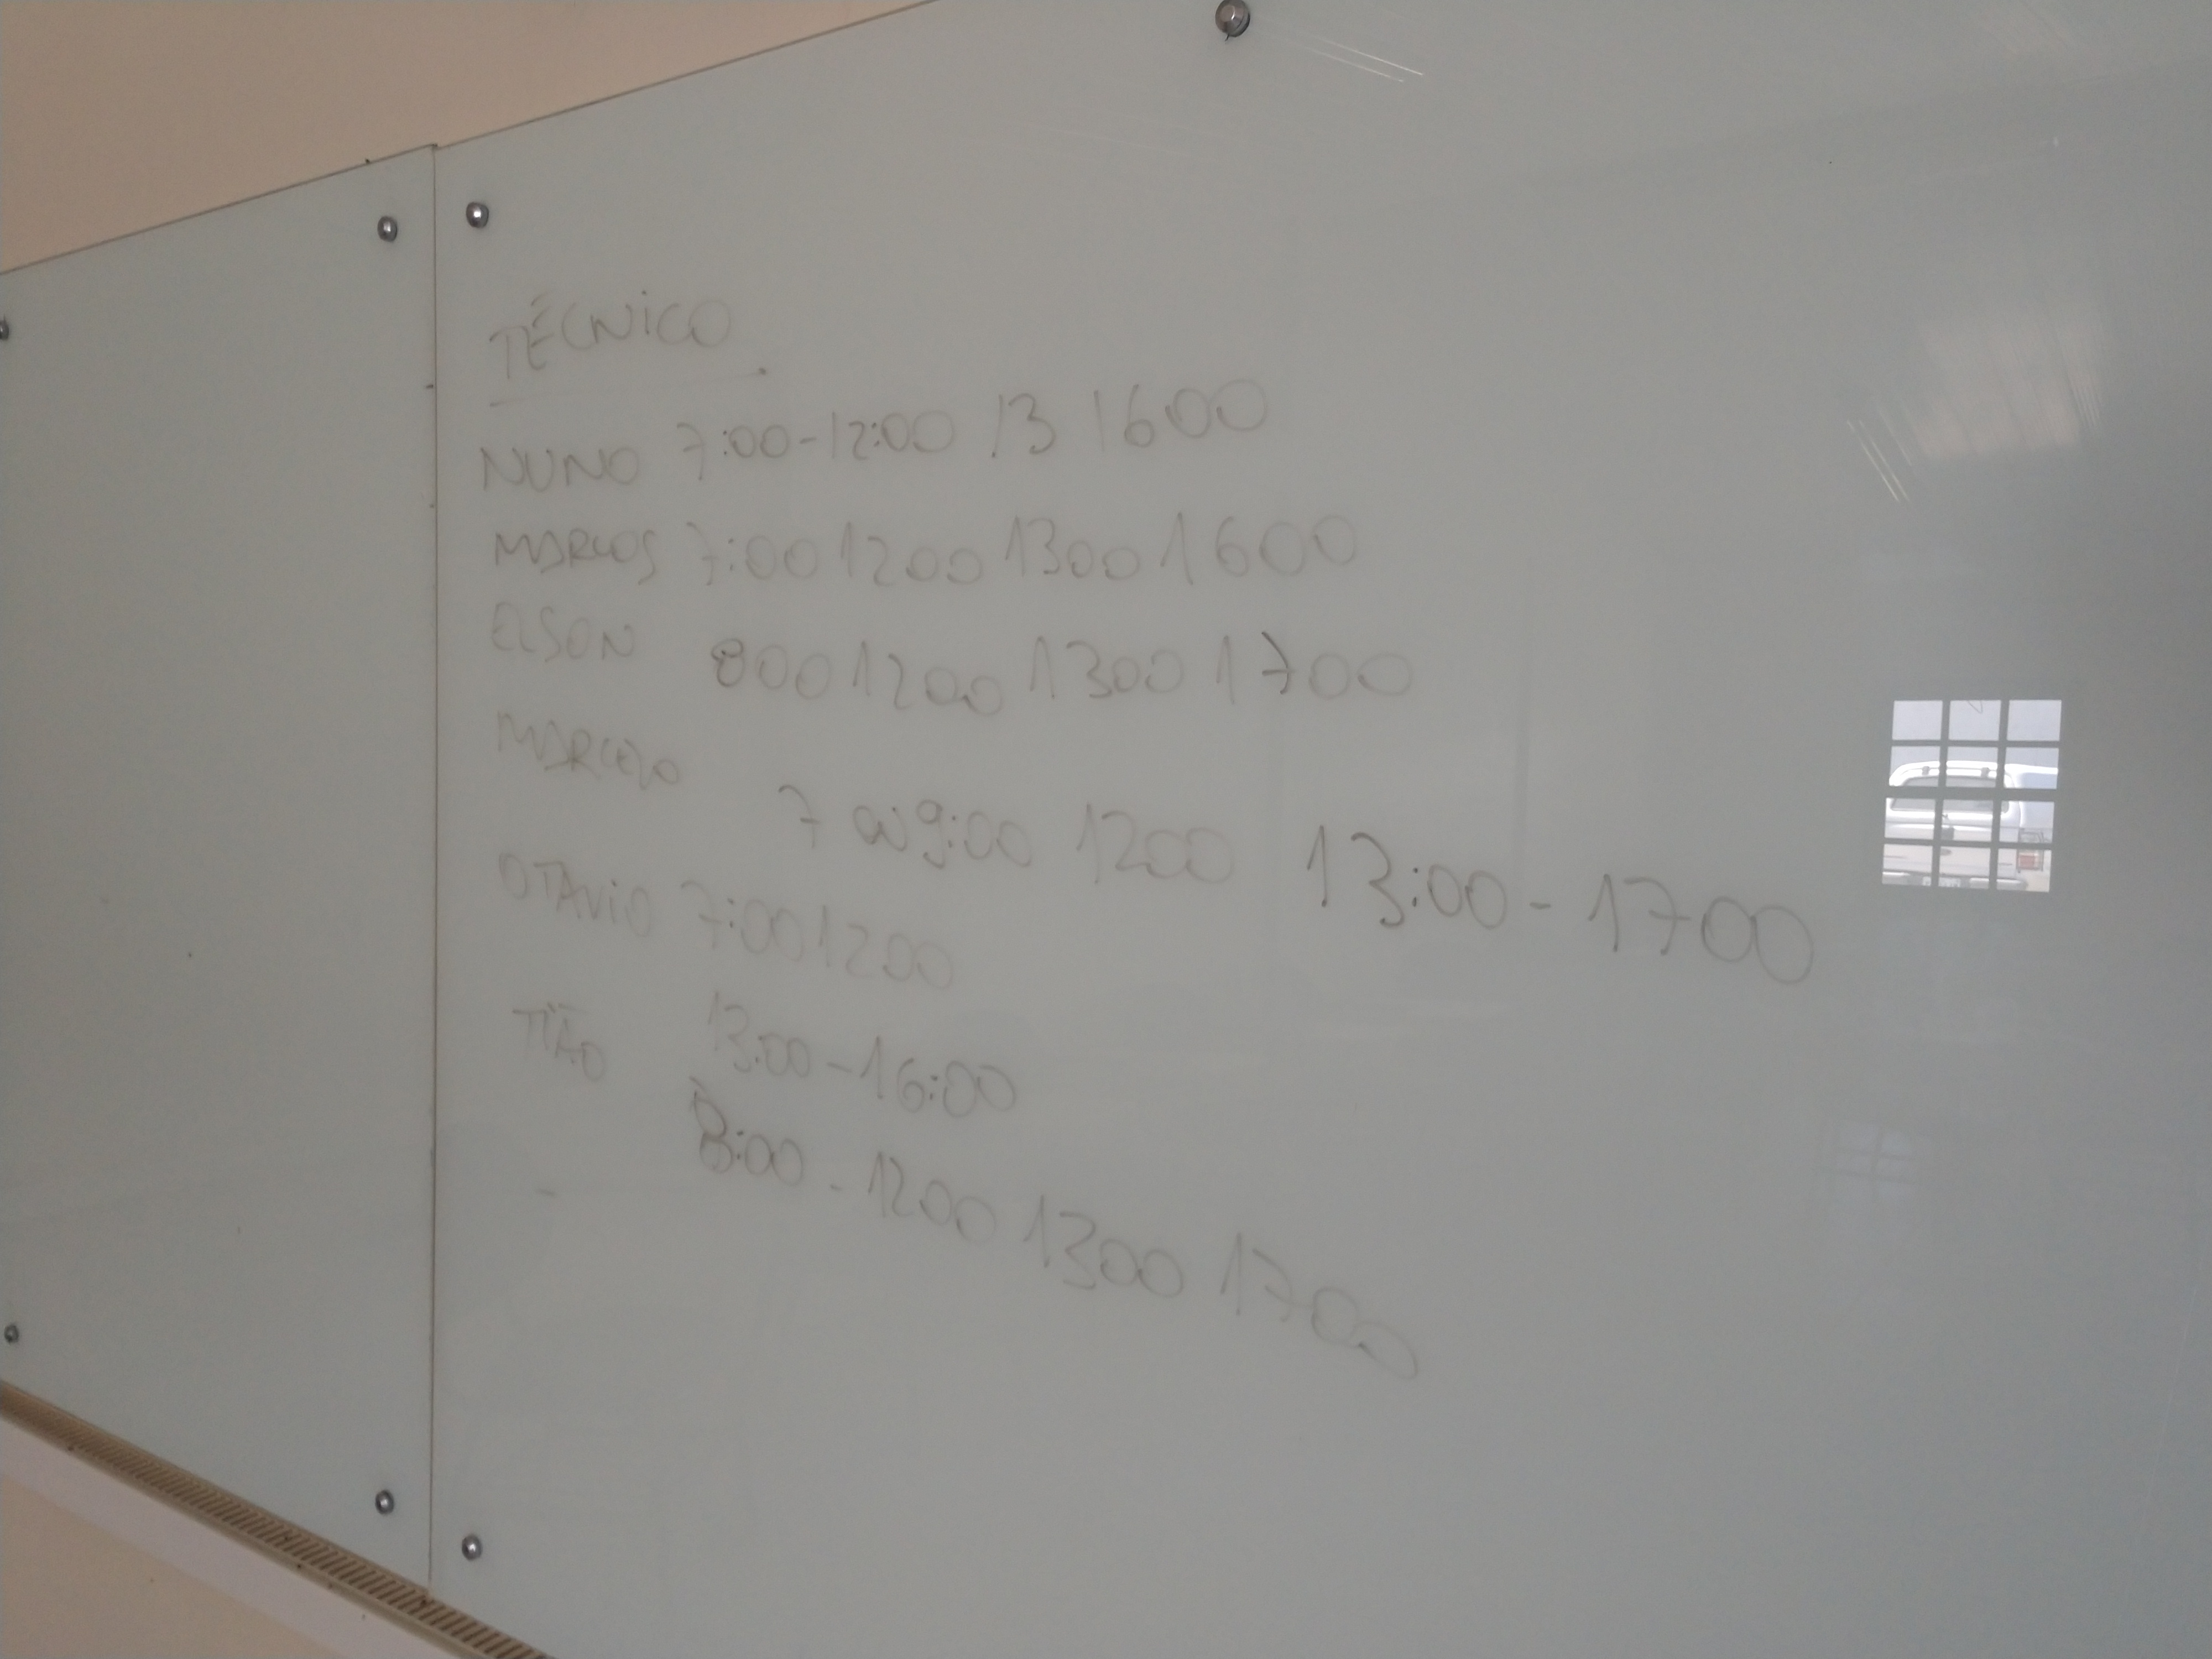 TÉCNICO
NUNO 7:00-12:00 13 1600
MARCOS 7:00 1200 1300 1600
ELSON 800 1200 1300 1700
MARCELO 7 9:00 1200 13:00-1700
OTAVIO 7:00 1200
13:00-16:00
TIÃO 8:00-1200 1300 1700